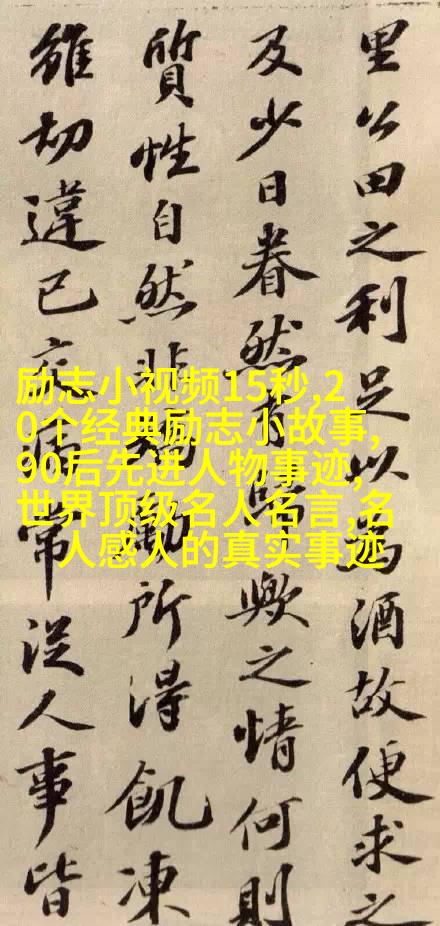 里公田之利足以為酒故便求之
及少日眷然有歸歟之情何則
質性自然非矯勵所得飢凍
雖切違已交病常從人事皆
励志小视频15秒,2
0个经典励志小故事,
90后先进人物事迹,
世界顶级名人名言,名
人感人的真实事迹